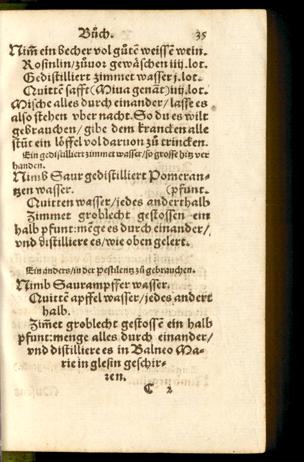 Bůch. 35
Nim̃ ein becher vol gůtẽ weissẽ wein.
Rosinlin/zůuor gewäschen iiij.lot.
Gedistilliert zimmet wasser j.lot.
Quittẽ safft (Miua genãt) iiij.lot.
Mische alles durch einander/lasse es
also stehen vber nacht. So du es wilt
gebrauchen/gibe dem krancken alle
stůt ein löffel vol daruon zů trincken.
Ein gedistilliert zimmet wasser/so grosse hitz ver
handen.
Nimb Saur gedistilliert Pomeran-
tzen wasser. (pfunt.
Quitten wasser/jedes anderthalb
Zimmet groblecht gestossen ein
halb pfunt:mẽge es durch einander/
vnd distilliere es/wie oben gelert.
Ein anders/in der Pestilentz zů gebrauchen.
Nimb Saurampffer wasser.
Quittẽ apffel wasser/jedes andert
halb.
Zim̃et groblecht gestossẽ ein halb
pfunt:menge alles durch einander/
vnd distilliere es in Balneo Ma-
rie in glesin geschir-
ren.
C 2